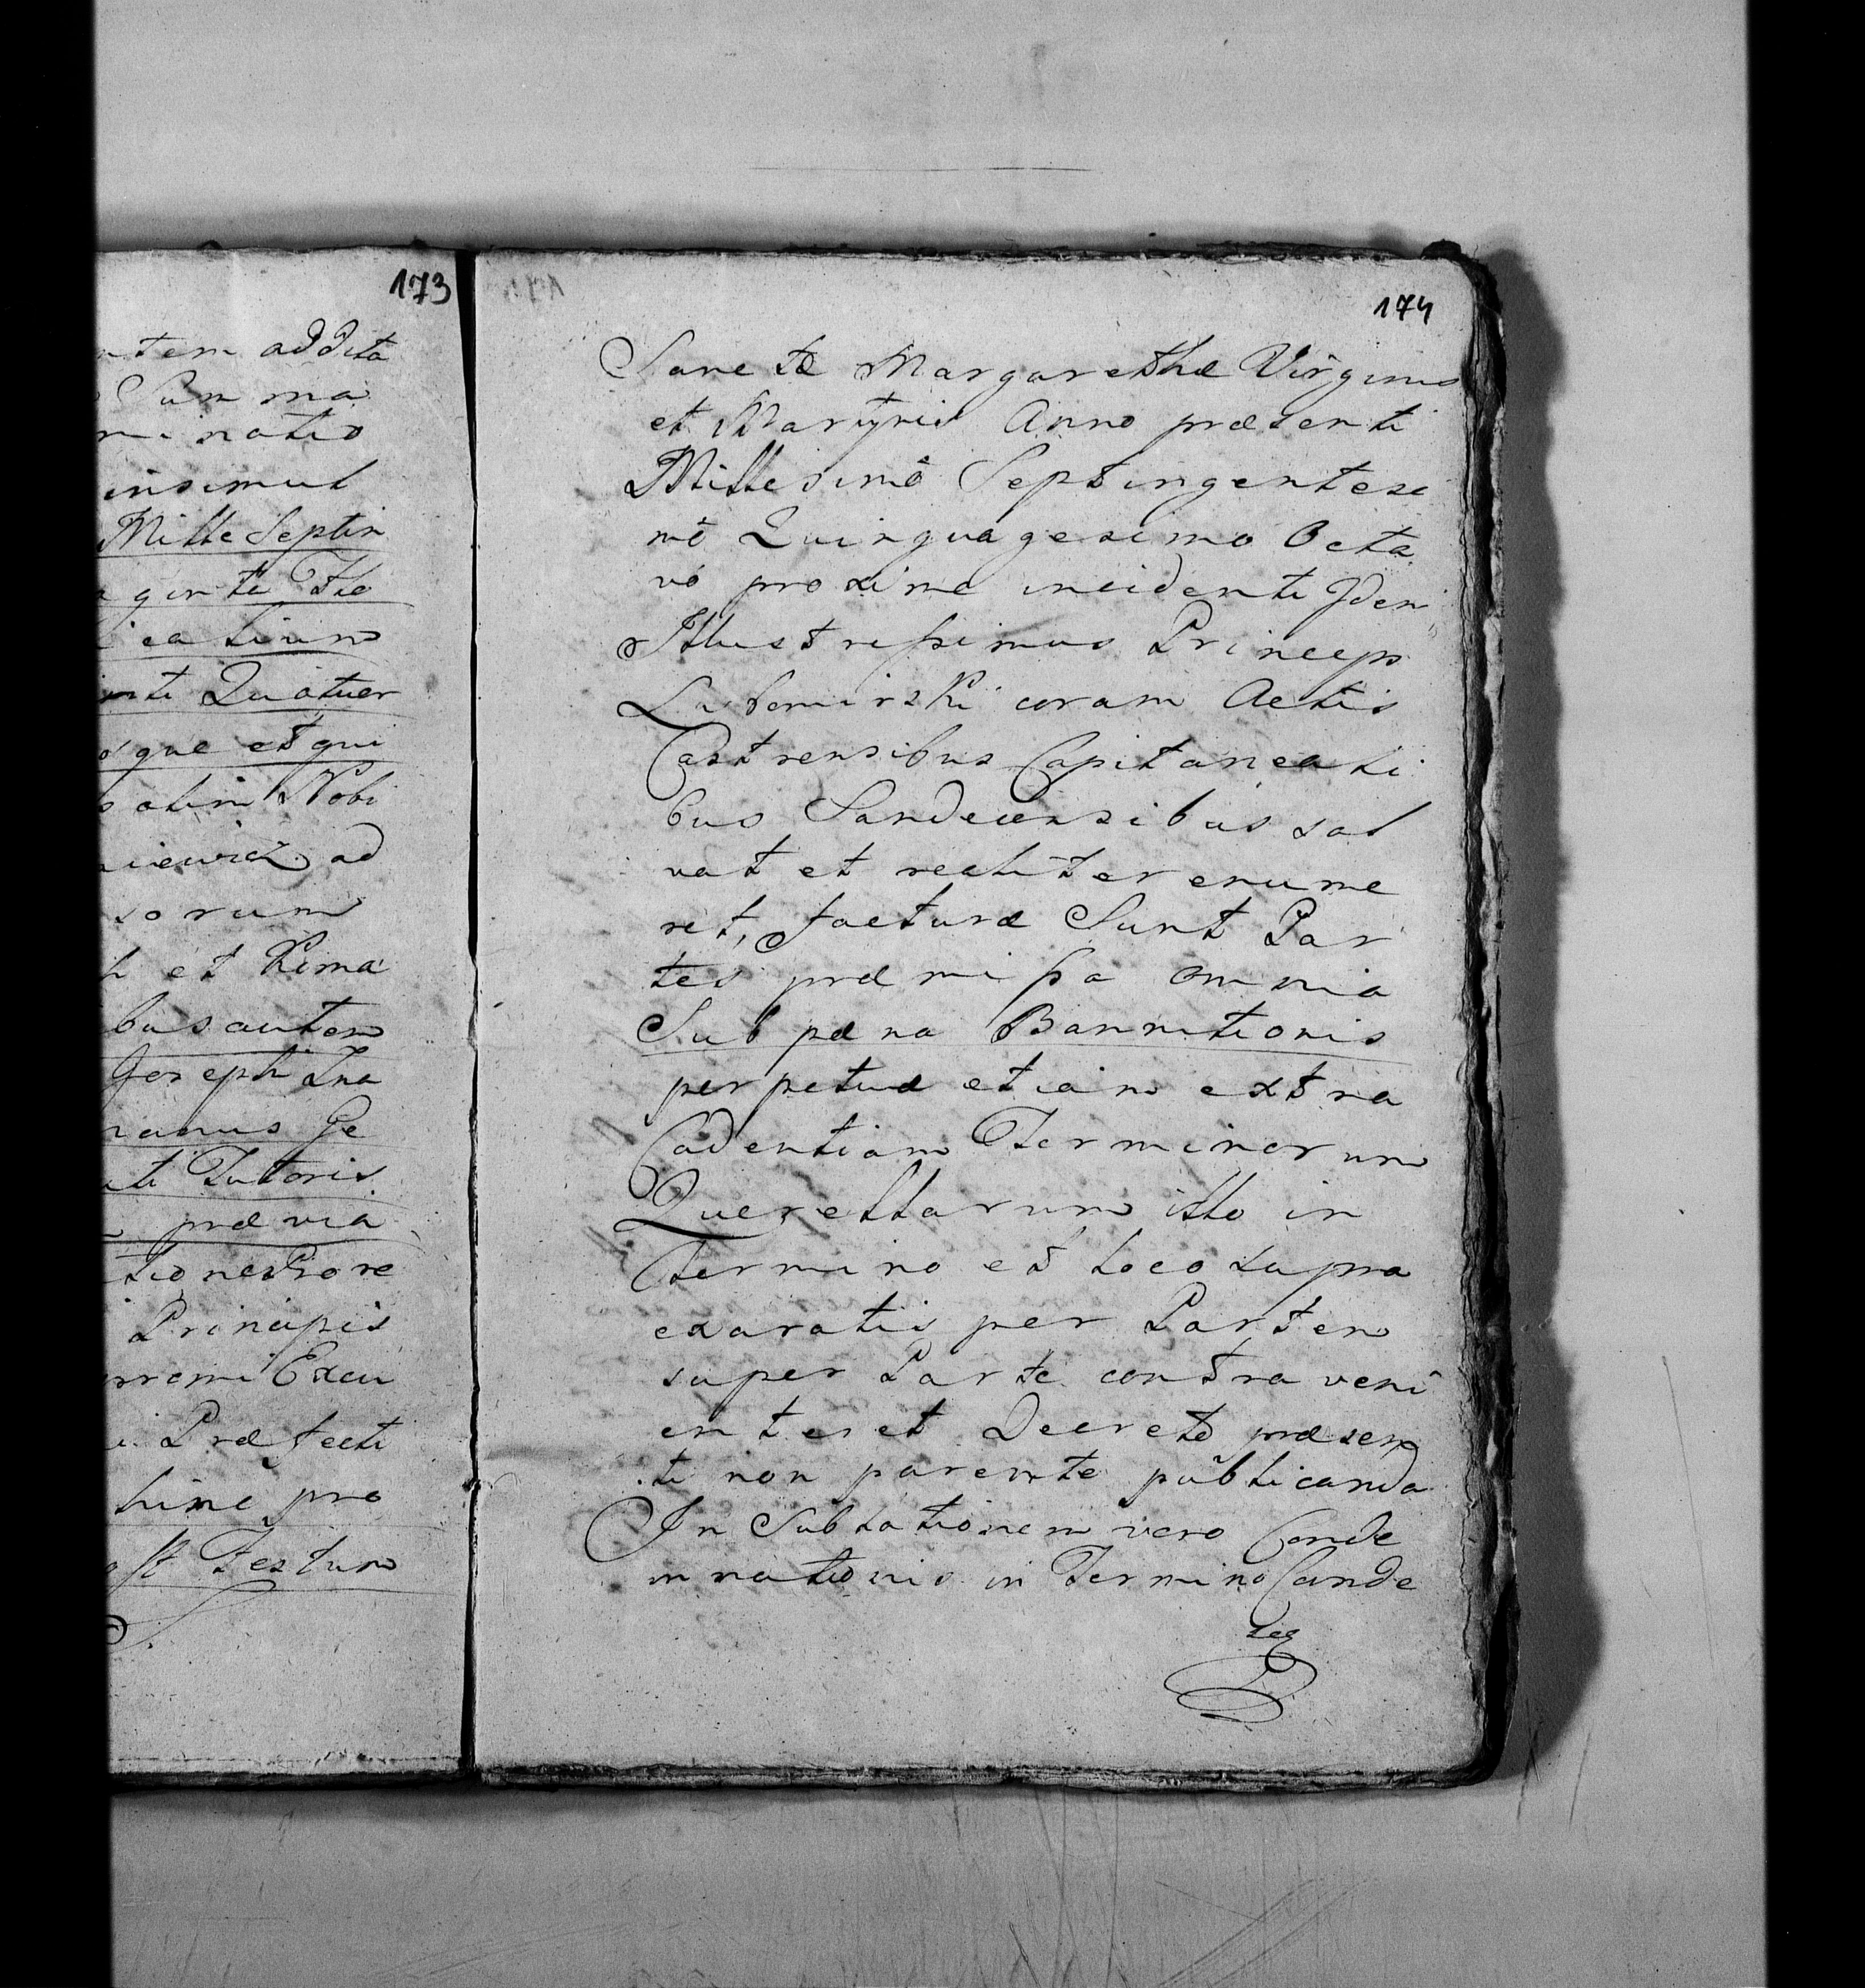 173
ntem addita
Summa
minatio
insimul
Mille Septin
ginti Flo
catium
nti Quatuor
sque et qui
olim Nobi
niewicz ad
sorum
et Rima
bus autem
Joseph Zna
ranus Ge
ti Tutoris
prævia
tionestiore
Principis
premi Excu
i Præfecti
hinc pro
st Festum
174
Sanctæ Margarethæ Virginis
et Martyris Anno præsenti
Millesimô Septingentesi
mô Quinquagesimo Octa
vô proxime incidenti Idem
Illustrissimus Princeps
Lubomirski coram Actis
Castrensibus Capitaneati
bus Sandecensibus sol
vat et realiter enume
ret, facturæ Sunt Par
tes præmissa omnia
Sub pæna Bannitionis
perpetuæ etiam extra
Cadentiam Terminorum
Querellarum illo in
Termino et loco supra
exaratis per Partem
super Parte contraveni
ente et Decretô præsen
ti non parente publicanda
In Sublationem vero Conde
mnationis in Termino Cande